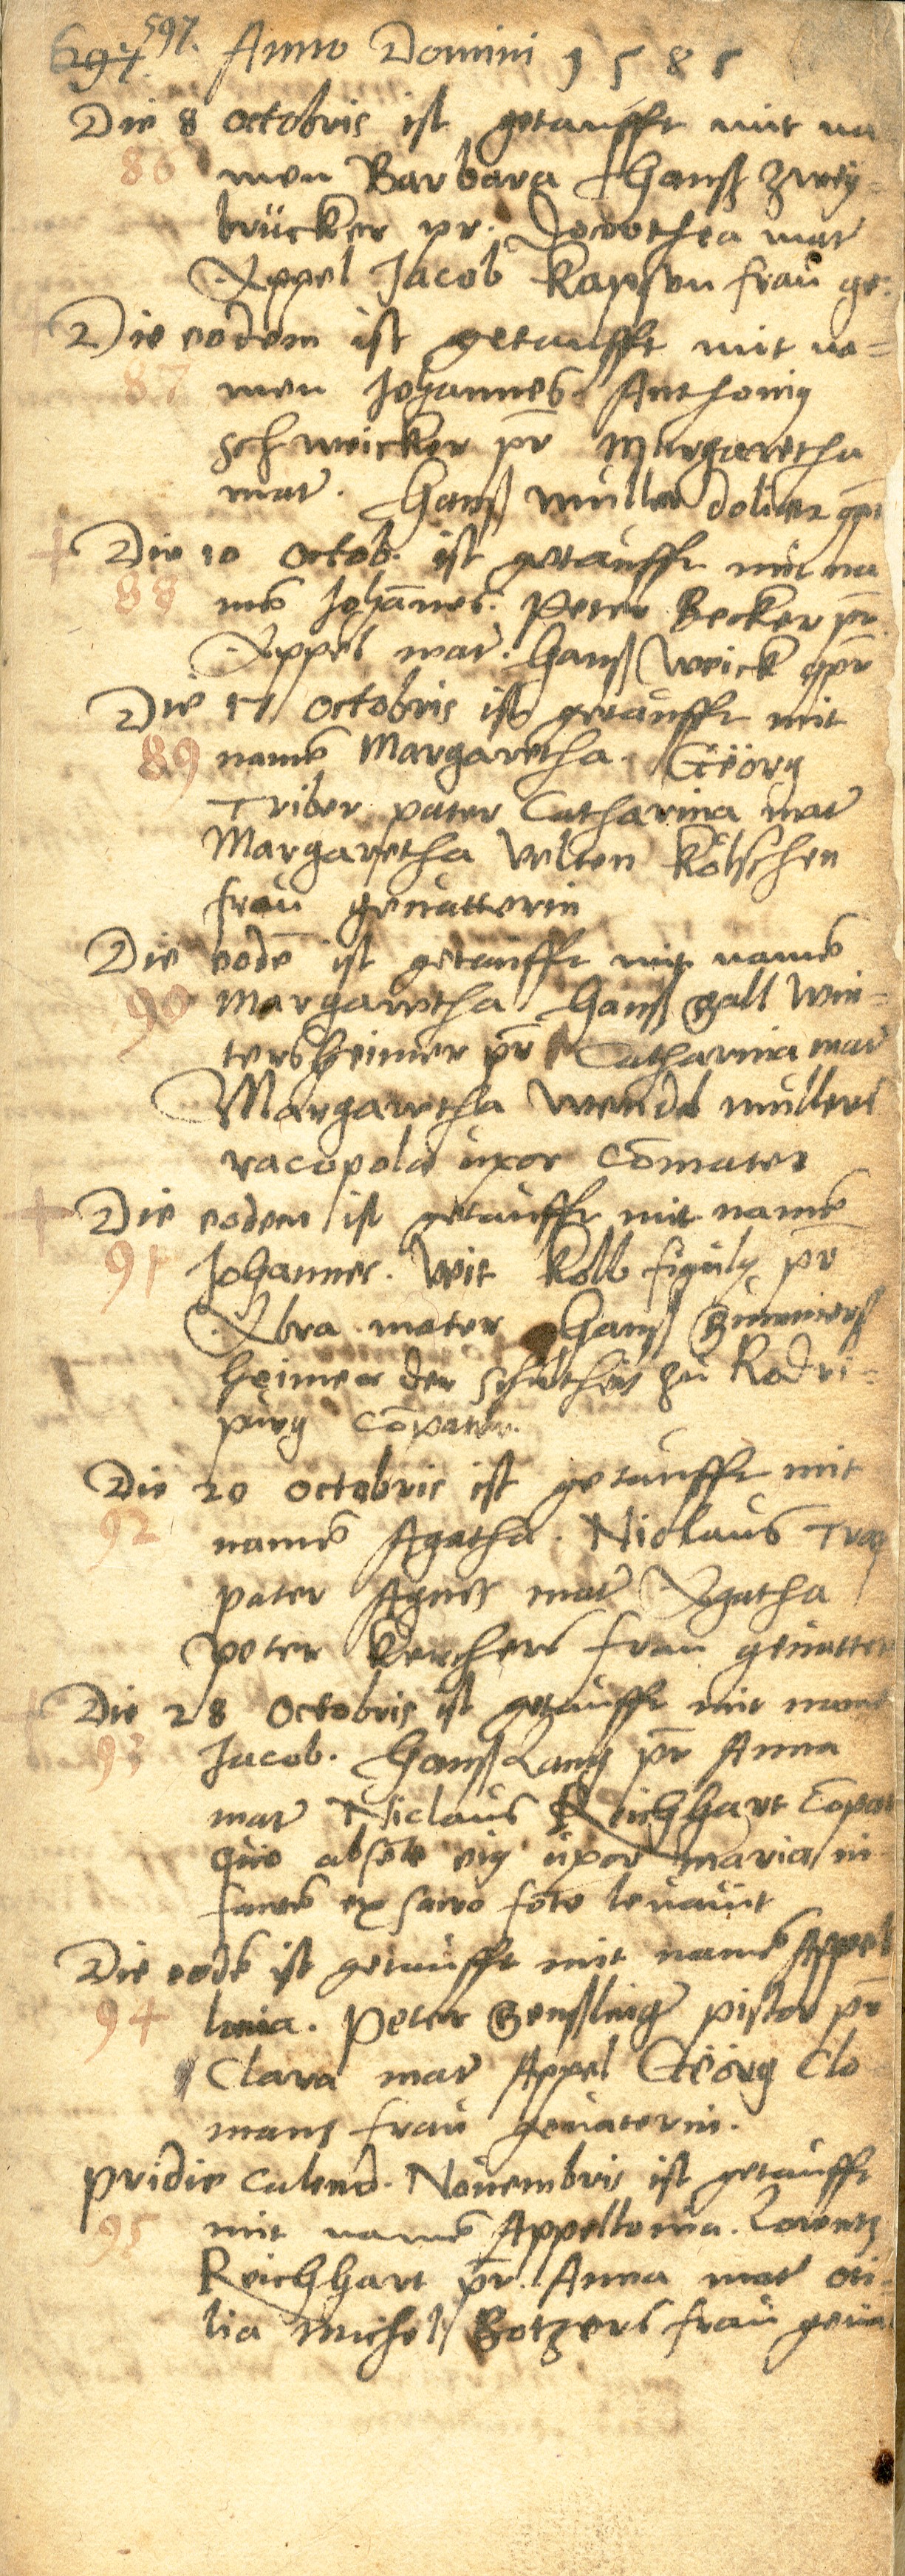 597.
Anno Domini 1585
Die 8 octobris ist getaufft mit na
86 men Barbara Hanß Zwey-
brücker pr. Dorothea mat
Appel Jacob Kapsen frau ge.
Die eodem ist getaufft mit na=
87 men Johannes. Anthoniy
schweicker pr Margaretha
mat. Hanß müller
Die 10 octob. ist getaufft mit na
88 mē Johānes. Peter Becker pr
Appel mat. Hanß Weick gpr
Die 17 octobris ist getaufft mit
89 namē Margaretha. Geörg
Triber pater Catharina mat
Margaretha Velten Kölschen
frau geuatterin
Die eodē ist getaufft mit namē
90 Margaretha Hanß Gall Win-
tersheimer pr Catharina mat
Margaretha Wendel müllers
uxor Comater
Die eodem ist getaufft mit namē
91 Johannes. Veit Kolb figuly pr
Abra mater Hanß Gimmers
heimer der schulthes zu Rodri=
purg compater.
Die 20 octobris ist getaufft mit
92 namē Agatha. Niclaus
pater Agnes mat Agatha
Peter Kerchers frau geuatter
Die 28 octobris ist getaufft mit namē
93 Jacob. Hanß Lang pr Anna
mat Niclaus Reichhart Copat
quo absēte eiy uxor maria in
fantē ex sacro fōte leuauit
Die eodē ist getaufft mit namē Appel
94 lonia. Peter Genßling pistor pr
Clara mat Appel Geörg Clo
mans frau geuaterin.
pridie Calend. Nouembris ist getaufft
95 mit namē Appellonia. Lorentz
Reichhart pr. Anna mat oti-
lia michels Botzers frau geua